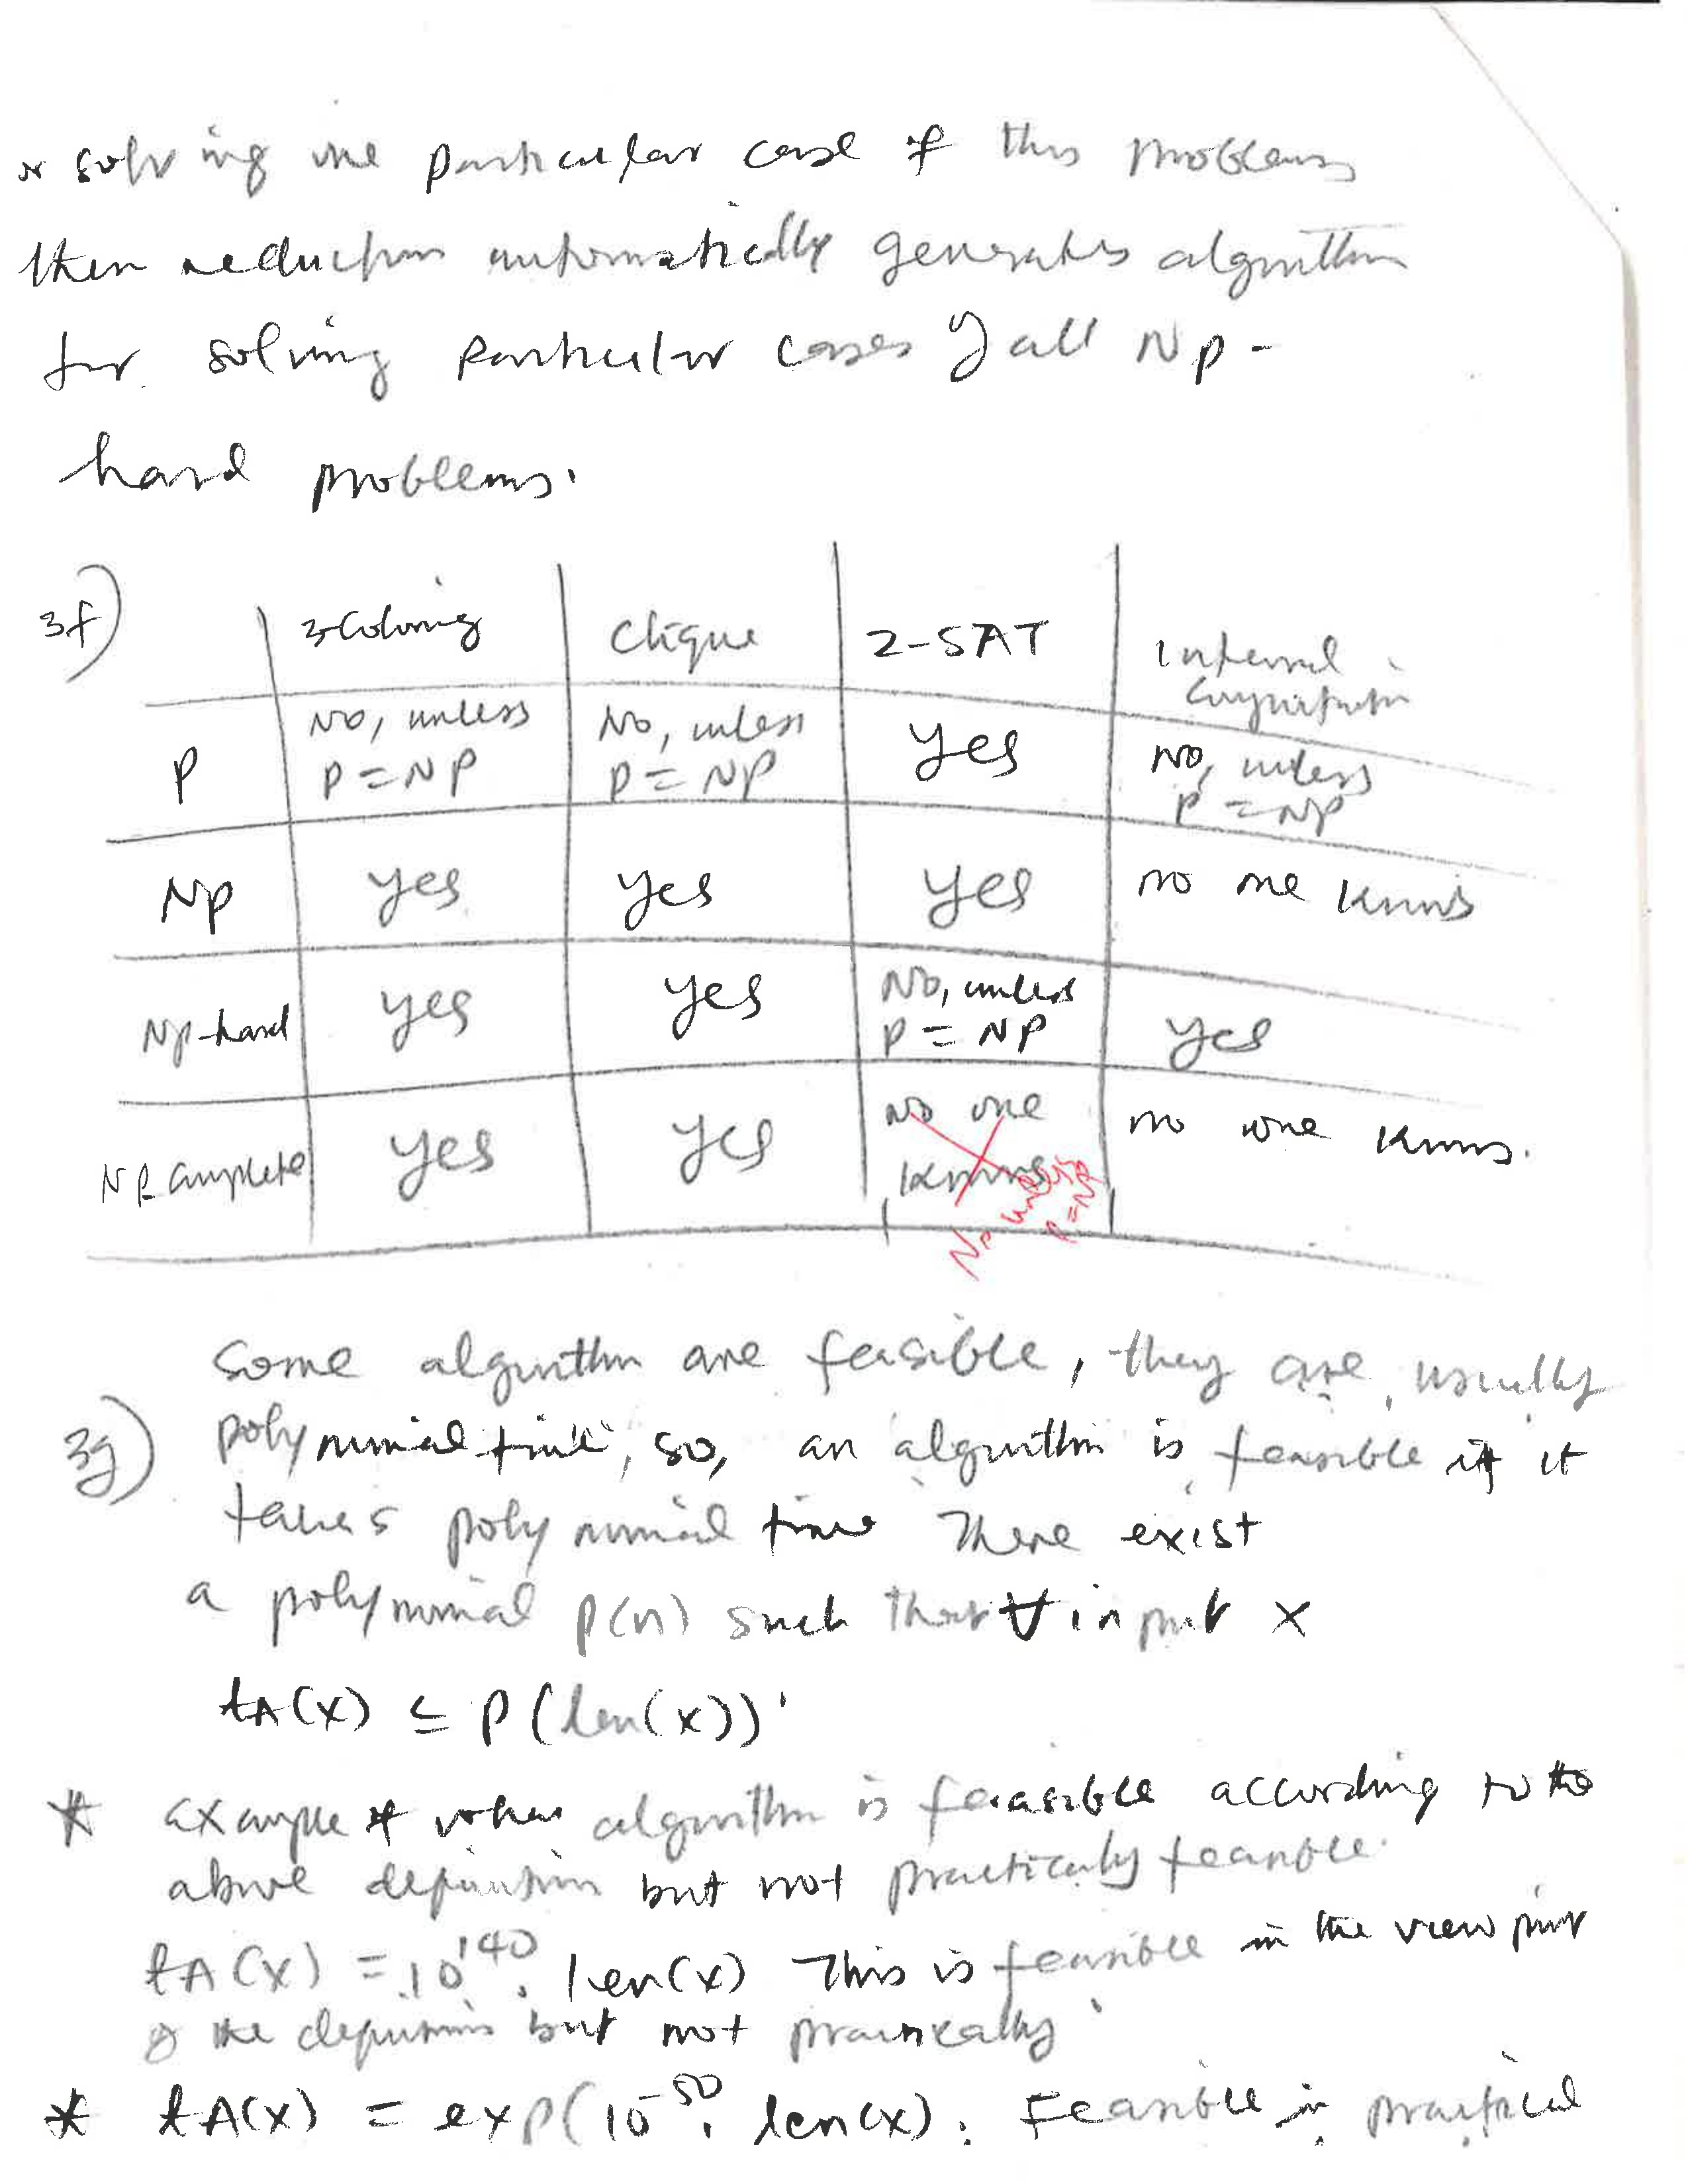 solving one particular case of this problems
then reduction automatically generates algorithm
for solving particular cases of all NP-
hard problems.
3f)
3-Coloring Clique 2-SAT Interval Computation
P No, unless P = NP No, unless P = NP Yes No, unless P = NP
NP yes yes yes no one knows
NP-hard yes yes No, unless P = NP yes
NP complete yes yes No one knows no one knows.
No unless P = NP
Some algorithm are feasible, they are usually
3g) polynomial time, so, an algorithm is feasible if it
takes polynomial time There exist
a polynomial P(n) such that ∀ input x
tA(x) ≤ P(len(x))
* example of when algorithm is feasible according to the
above definition but not practically feasible.
tA(x) = 10^140 . len(x) This is feasible in the view point
of the definition but not practically
* tA(x) = exp(10^-50 . len(x). Feasible in practical